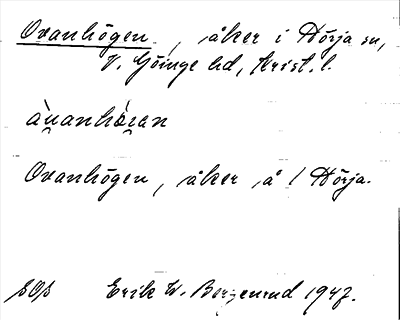 Ovanhögen, åker i Hörja sn,
V. Göinge hd, Krist. l.
ånanhöɡen
Ovanhögen, åker å 1 Hörja.
Erik W. Bergenrud 1947.